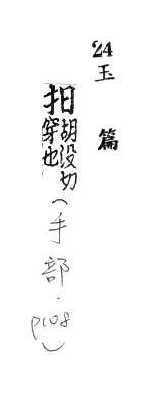 24
玉篇
抇胡没切穿也(手部.p108)